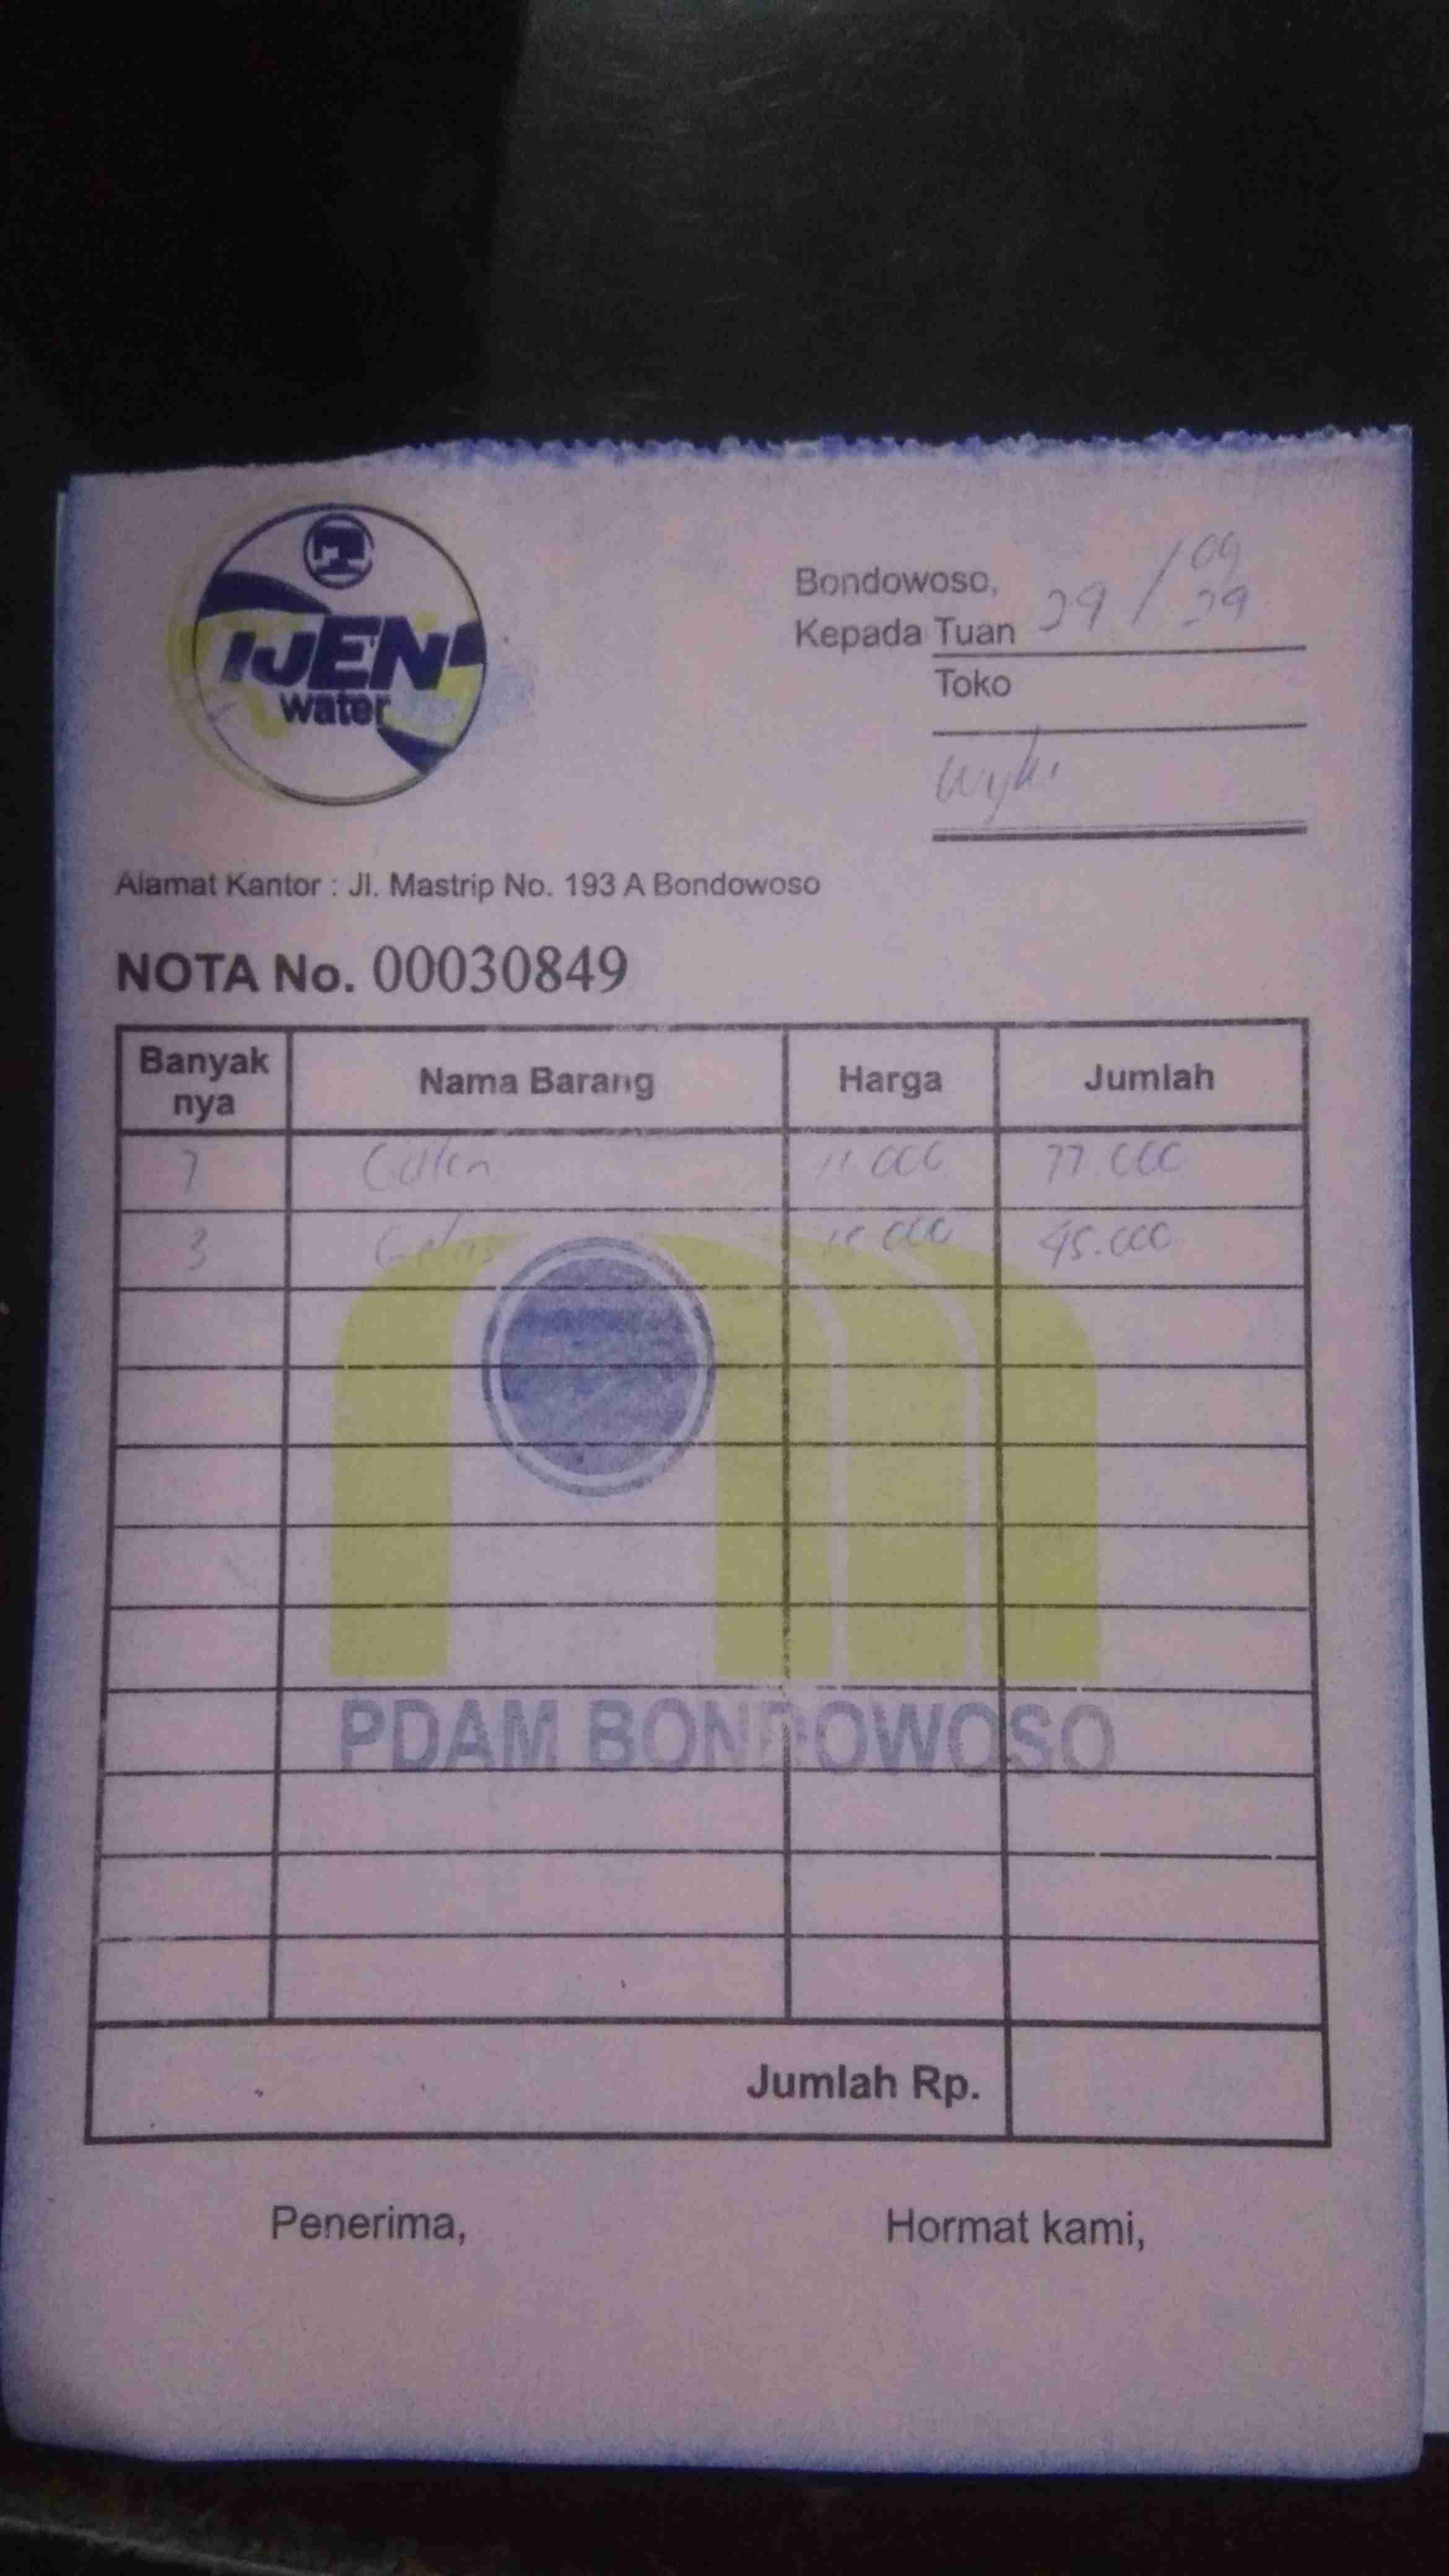 IJEN
water
Bondowoso,
Kepada Tuan 29 / 09
Toko
Alamat Kantor : Jl. Mastrip No. 193 A Bondowoso
NOTA No. 00030849
Banyak nya Nama Barang Harga Jumlah
7 Galon 11.000 77.000
3 Gelas 15.000 45.000
PDAM BONDOWOSO
Jumlah Rp.
Penerima, Hormat kami,